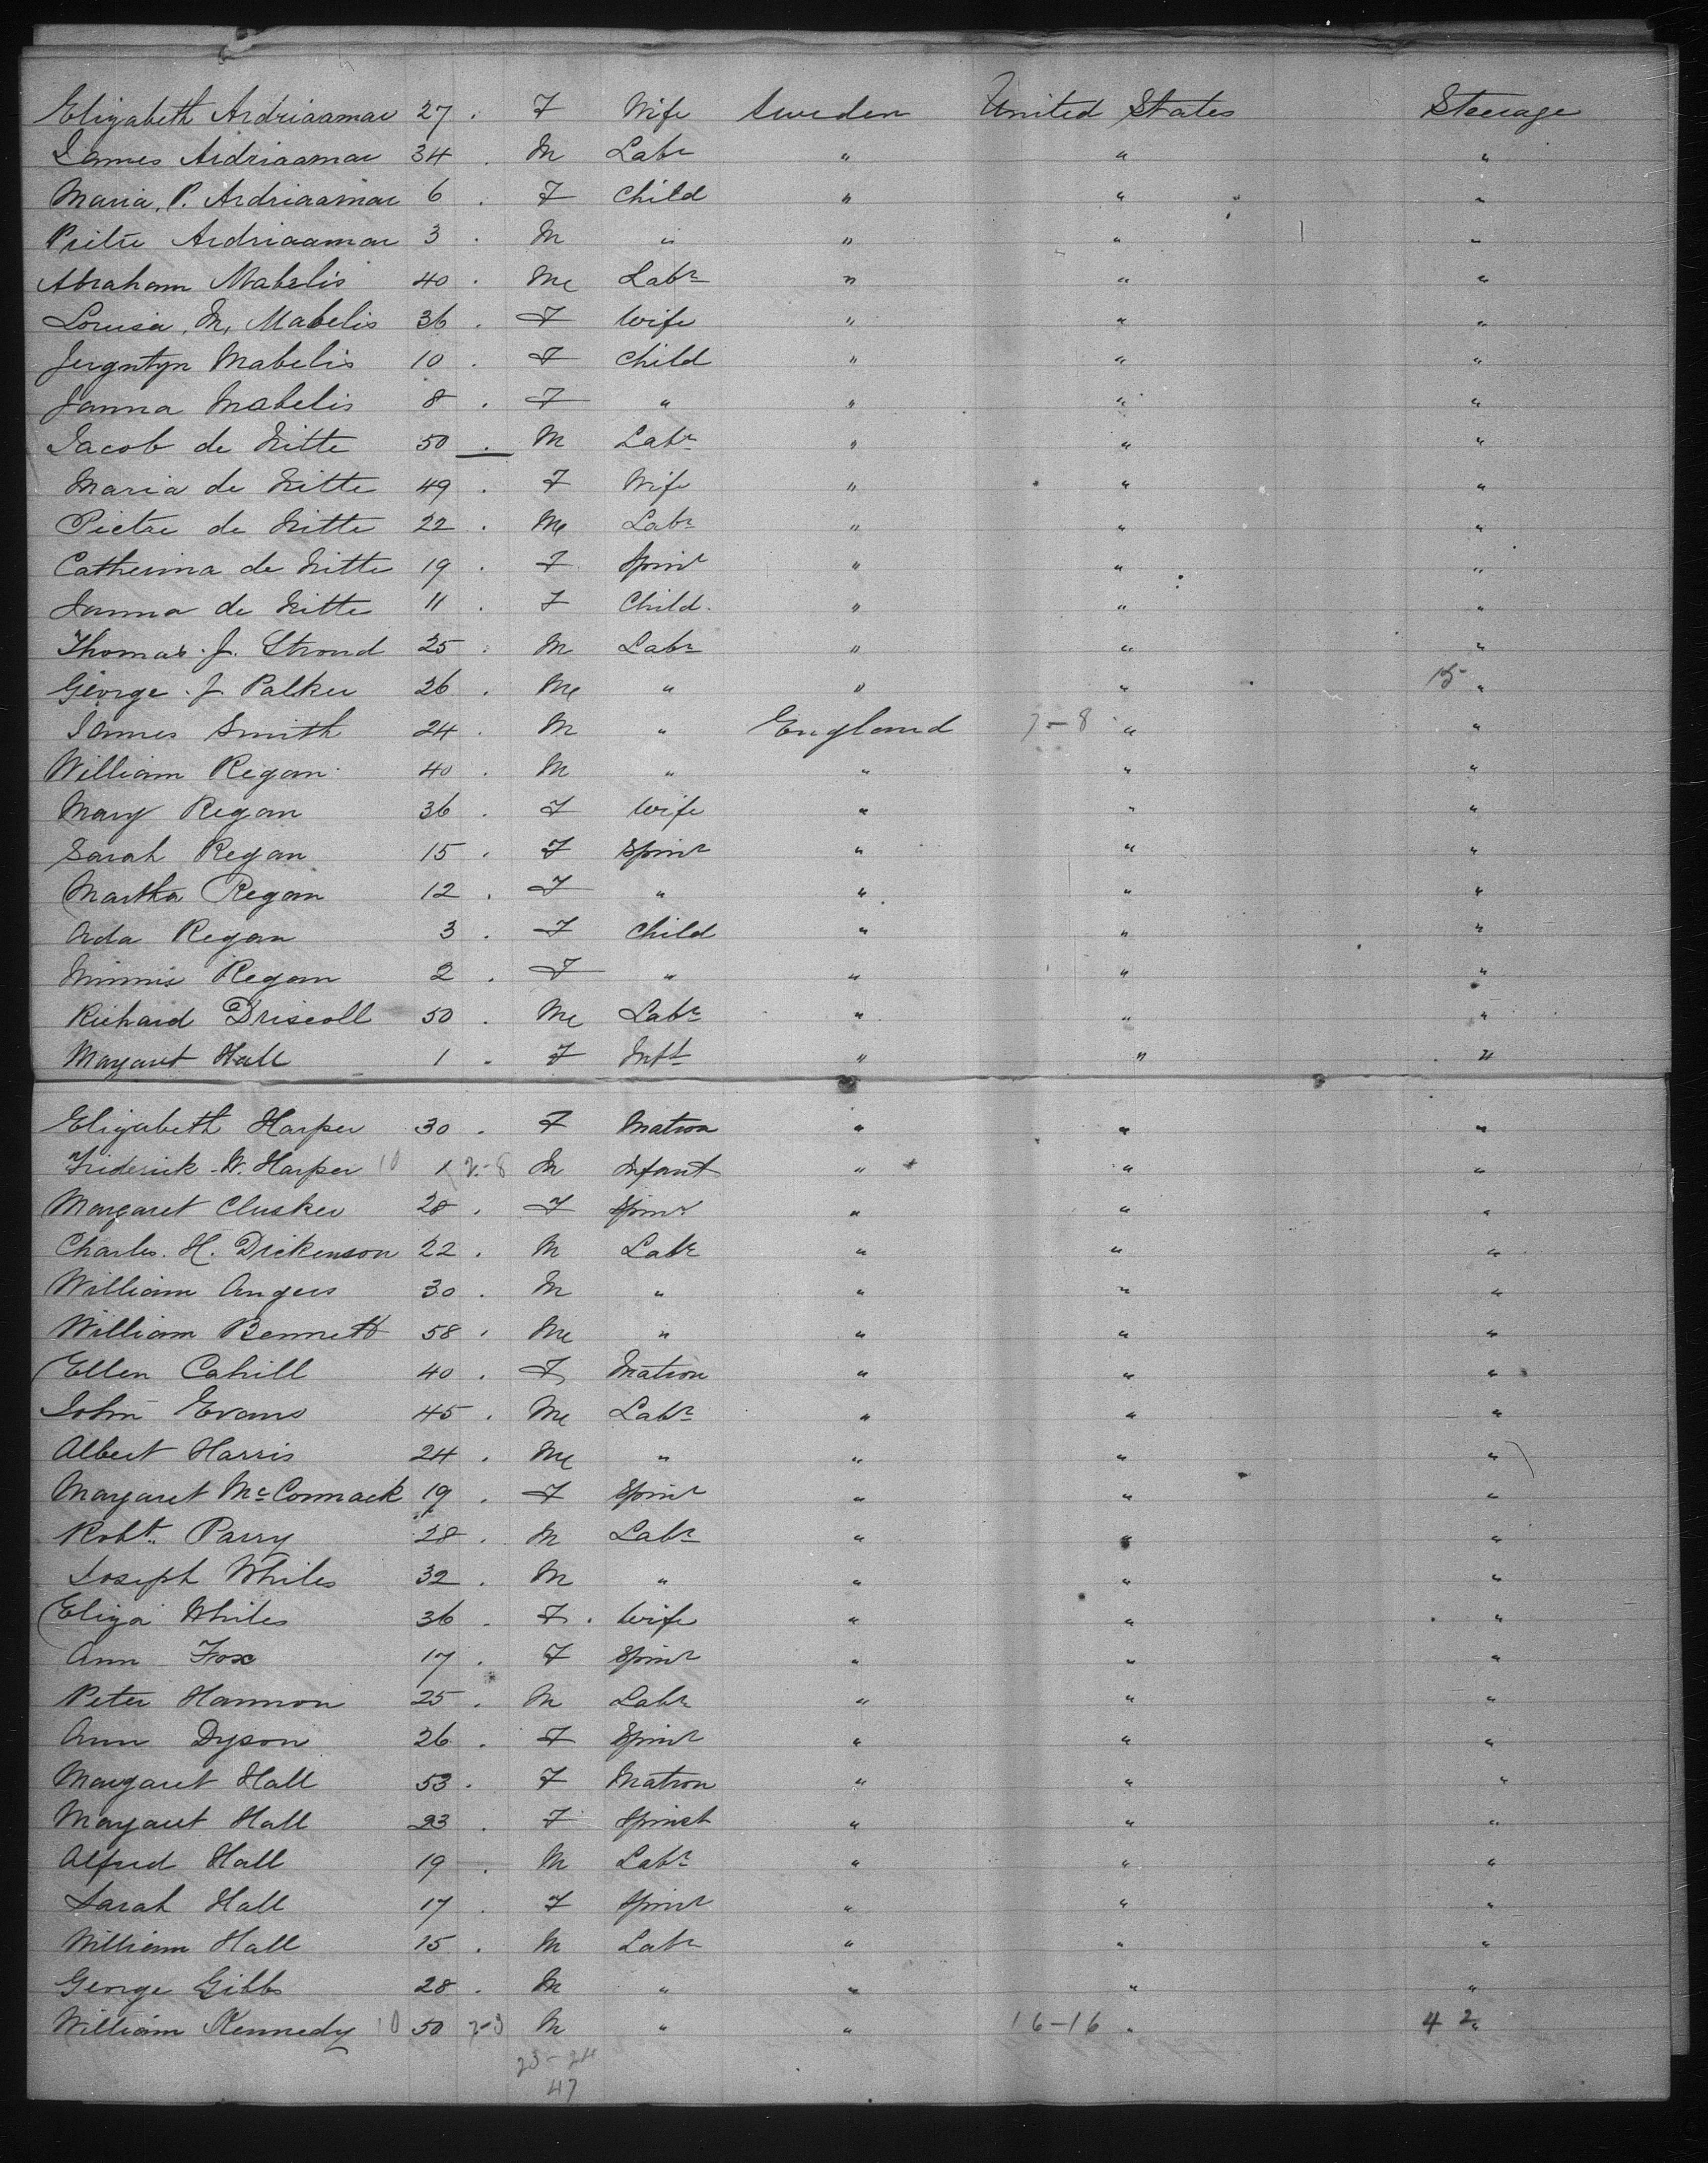 Elizabeth Ardriaamar 27 . F Wife Sweden United States Steerage
James Ardriaamar 34 . M Labr " " "
Maria. P. Ardriaamar 6 . F Child " " "
Peitre Ardriaamar 3 . M " " " "
Abraham Mabelis 40 . M Labr " " "
Louisa. M. Mabelis 36 . F Wife " " "
Jergntyn Mabelis 10 . F Child " " "
Janna Mabelis 8 . F " " " "
Jacob de Nitte 50 . M Labr " " "
Maria de Nitte 49 . F Wife " " "
Pietre de Nitte 22 . M Labr " " "
Catherina de Nitte 19 . F Spinr " " "
Janna de Nitte 11 . F Child. " " "
Thomas. J. Stroud 25 . M Labr " " "
George. J Palker 26 . M " " " 15 "
James Smith 24 . M " England 7-8 " "
William Regan 40 . M " " " "
Mary Regan 36 . F Wife " " "
Sarah Regan 15 . F Spinr " " "
Martha Regan 12 . F " " " "
Ada Regan 3 . F Child " " "
Minnis Regan 2 . F " " " "
Richard Driscoll 50 . M Labr " " "
Margaret Hall 1 . F Inft " " "
Elizabeth Harper 30 . F Matron " " "
Frederick. W. Harper 10 1 2-8 M Infant " " "
Margaret Clusker 28 . F Spinr " " "
Charles. H. Dickenson 22 . M Labr " " "
William Angus 30 . M " " " "
William Bennett 58 . M " " " "
Ellen Cahill 40 . F Matron " " "
John Evans 45 . M Labr " " "
Albert Harris 24 . M " " " "
Margaret McCormack 19 . F Spinr " " "
Robt. Parry 28 . M Labr " " "
Joseph Whiles 32 . M " " " "
Eliza Whiles 36 . F . Wife " " "
Ann Fox 17 . F Spinr " " "
Peter Hannon 25 . M Labr " " "
Ann Dyson 26 . F Spinr " " "
Margaret Hall 53 . F Matron " " "
Margaret Hall 23 . F Spinst " " "
Alfred Hall 19 . M Labr " " "
Sarah Hall 17 . F Spinr " " "
William Hall 15 . M Labr " " "
George Gibbs 28 . M " " " "
William Kennedy 10 50 7-3 M " " 16-16 " 42 "
23-24
47